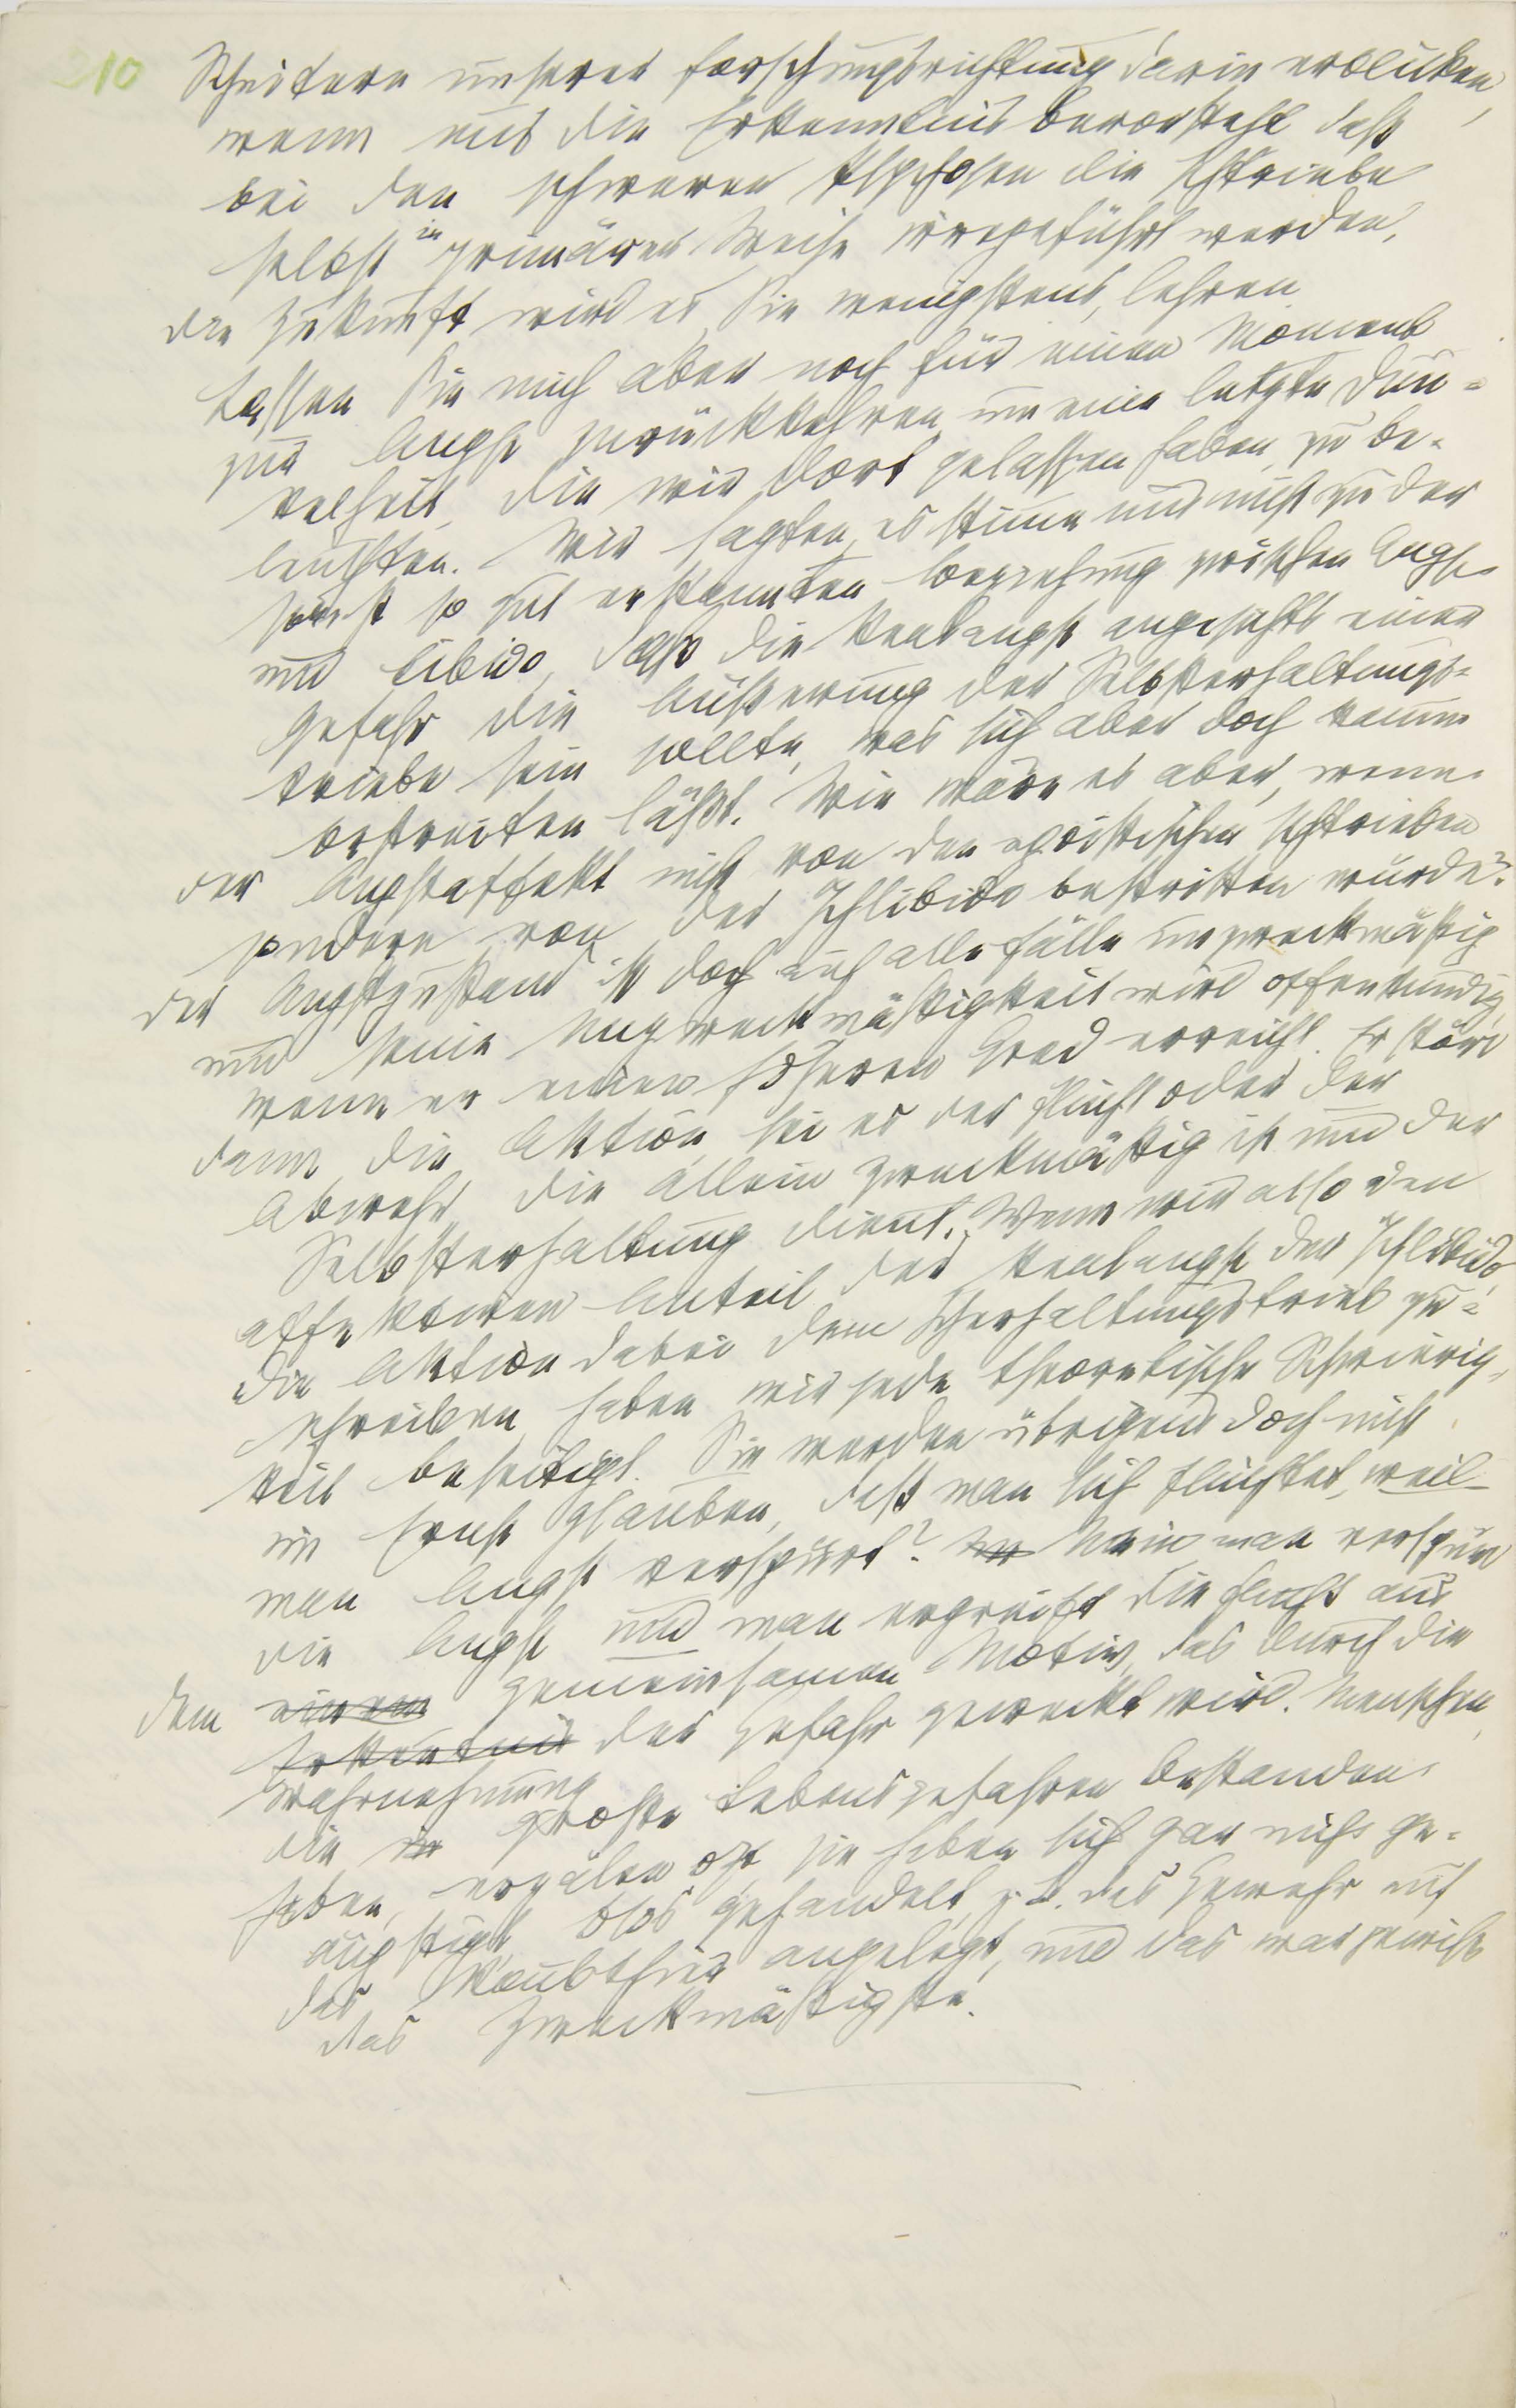 210
Scheitern unserer Forschungsrichtung darin erblicken,
wenn uns die Erkenntnis bevorsteht daß
bei den schweren Psychosen die Ichtriebe
selbst in primärer Weise irregeführt werden.
die Zukunft wird es, Sie wenigstens, lehren
Lassen Sie mich aber noch für einen Moment
zur Angst zurückkehren um eine letzte Dun=
kelheit, die wir dort gelassen haben, zu be=
leuchten. Wir sagten, es stimme uns nicht zu der
sonst so gut erkannten Beziehung zwischen Angst
und Libido, daß die Realangst angesichts einer
Gefahr die Äußerung der Selbsterhaltungs=
triebe sein sollte, was sich aber doch kaum
bestreiten läßt. Wie wäre es aber, wenn
der Angstaffekt nicht von den egoistischen Ichtrieben
sondern von der Ichlibido bestritten würde?
der Angstzustand ist doch auf alle Fälle unzweckmäßig
und seine Unzweckmäßigkeit wird offenkundig,
wenn er einen höheren Grad erreicht. Er stört
dann die Aktion, sei es der Flucht oder der
Abwehr, die allein zweckmäßig ist und der
Selbsterhaltung dient. Wenn wir also den
affektiven Anteil der Realangst der Ichlibido,
die Aktion dabei dem Icherhaltungstrieb zu=
schreiben, haben wir jede theoretische Schwierig=
keit beseitigt. Sie werden übrigens doch nicht
im Ernst glauben, daß man sich flüchtet, weil
man Angst verspürt? Nein man verspürt
die Angst und man ergreift die Flucht aus
dem einem gemeinsamen Motiv, das durch die
Erkenntnis der Gefahr geweckt wird. Menschen,
Wahrnehmung
die in große Lebensgefahren bestanden
haben, erzälen oft, sie haben sich gar nicht ge=
ängstigt, blos gehandelt, z. B. das Gewehr auf
das Raubthier angelegt, und das war gewiß
das Zweckmäßigste.